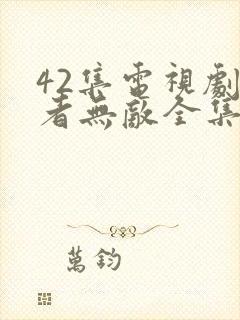 42集電視劇
者無敵全集
萬鈞